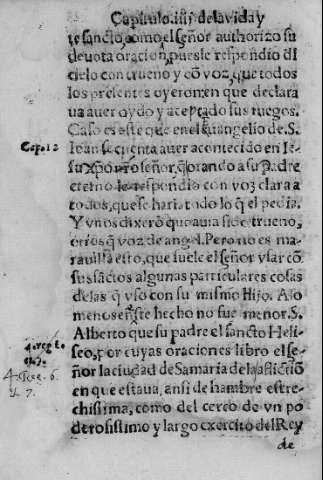 Capitulo.iiij.de la vida y
te sancto, como el señor authorizo su
deuota oracion, pues le respondio dl
cielo con trueno y cõ voz, que todos
los presentes oyeron en que declara
ua auer oydo y aceptado sus ruegos.
Caso es este que en el Euangelio de.S.
Capo12 Ioan se cuenta auer acontecido en Ie-
su Xpõ nr̃o señor, q̃ orando a su padre
eterno le respondio con voz clara a
todos, que se haria todo lo q̃ el pedia.
Y vnos dixerõ que auia sido trueno,
otros q̃ voz de angel. Pero no es ma-
rauilla esto, que suele el señor vsar cõ
sus sãctos algunas particulares cosas
de las q̃ vso con su mismo Hijo. A lo
menos en este hecho no fue menor.S.
Alberto que su padre el sancto Heli-
seo, por cuyas oraciones libro el se-
4. Reg. 6. ñor la ciudad de Samaria de la aflictiõ
& 7. en que estaua, ansi de hambre estre-
chissima, como del cerco de vn po
derosissimo y largo exercito del Rey
de